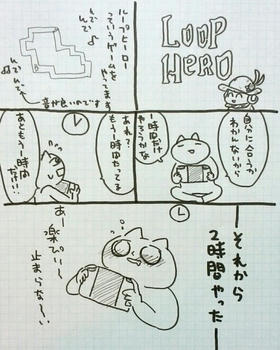 LOOP
HERO
ループヒーロー
っていうゲームを
やってます
んで
んで♪
んで
んで♪
音が良いのです
自分に合うか
わかんないから
1時間だけ
やろうかな
あれ?
もう一時間たってる
あともう一時間
だけ…!!
ーそれから
2時間やったー
あー
楽ぴぃ〜
止まらな〜い